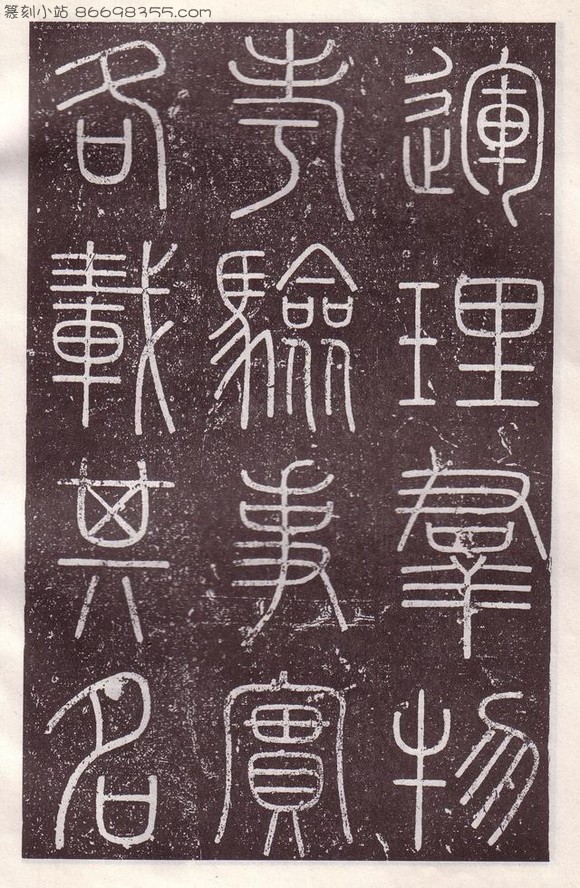 篆刻小站 86698355.com
運理羣物
考驗事實
各載其名